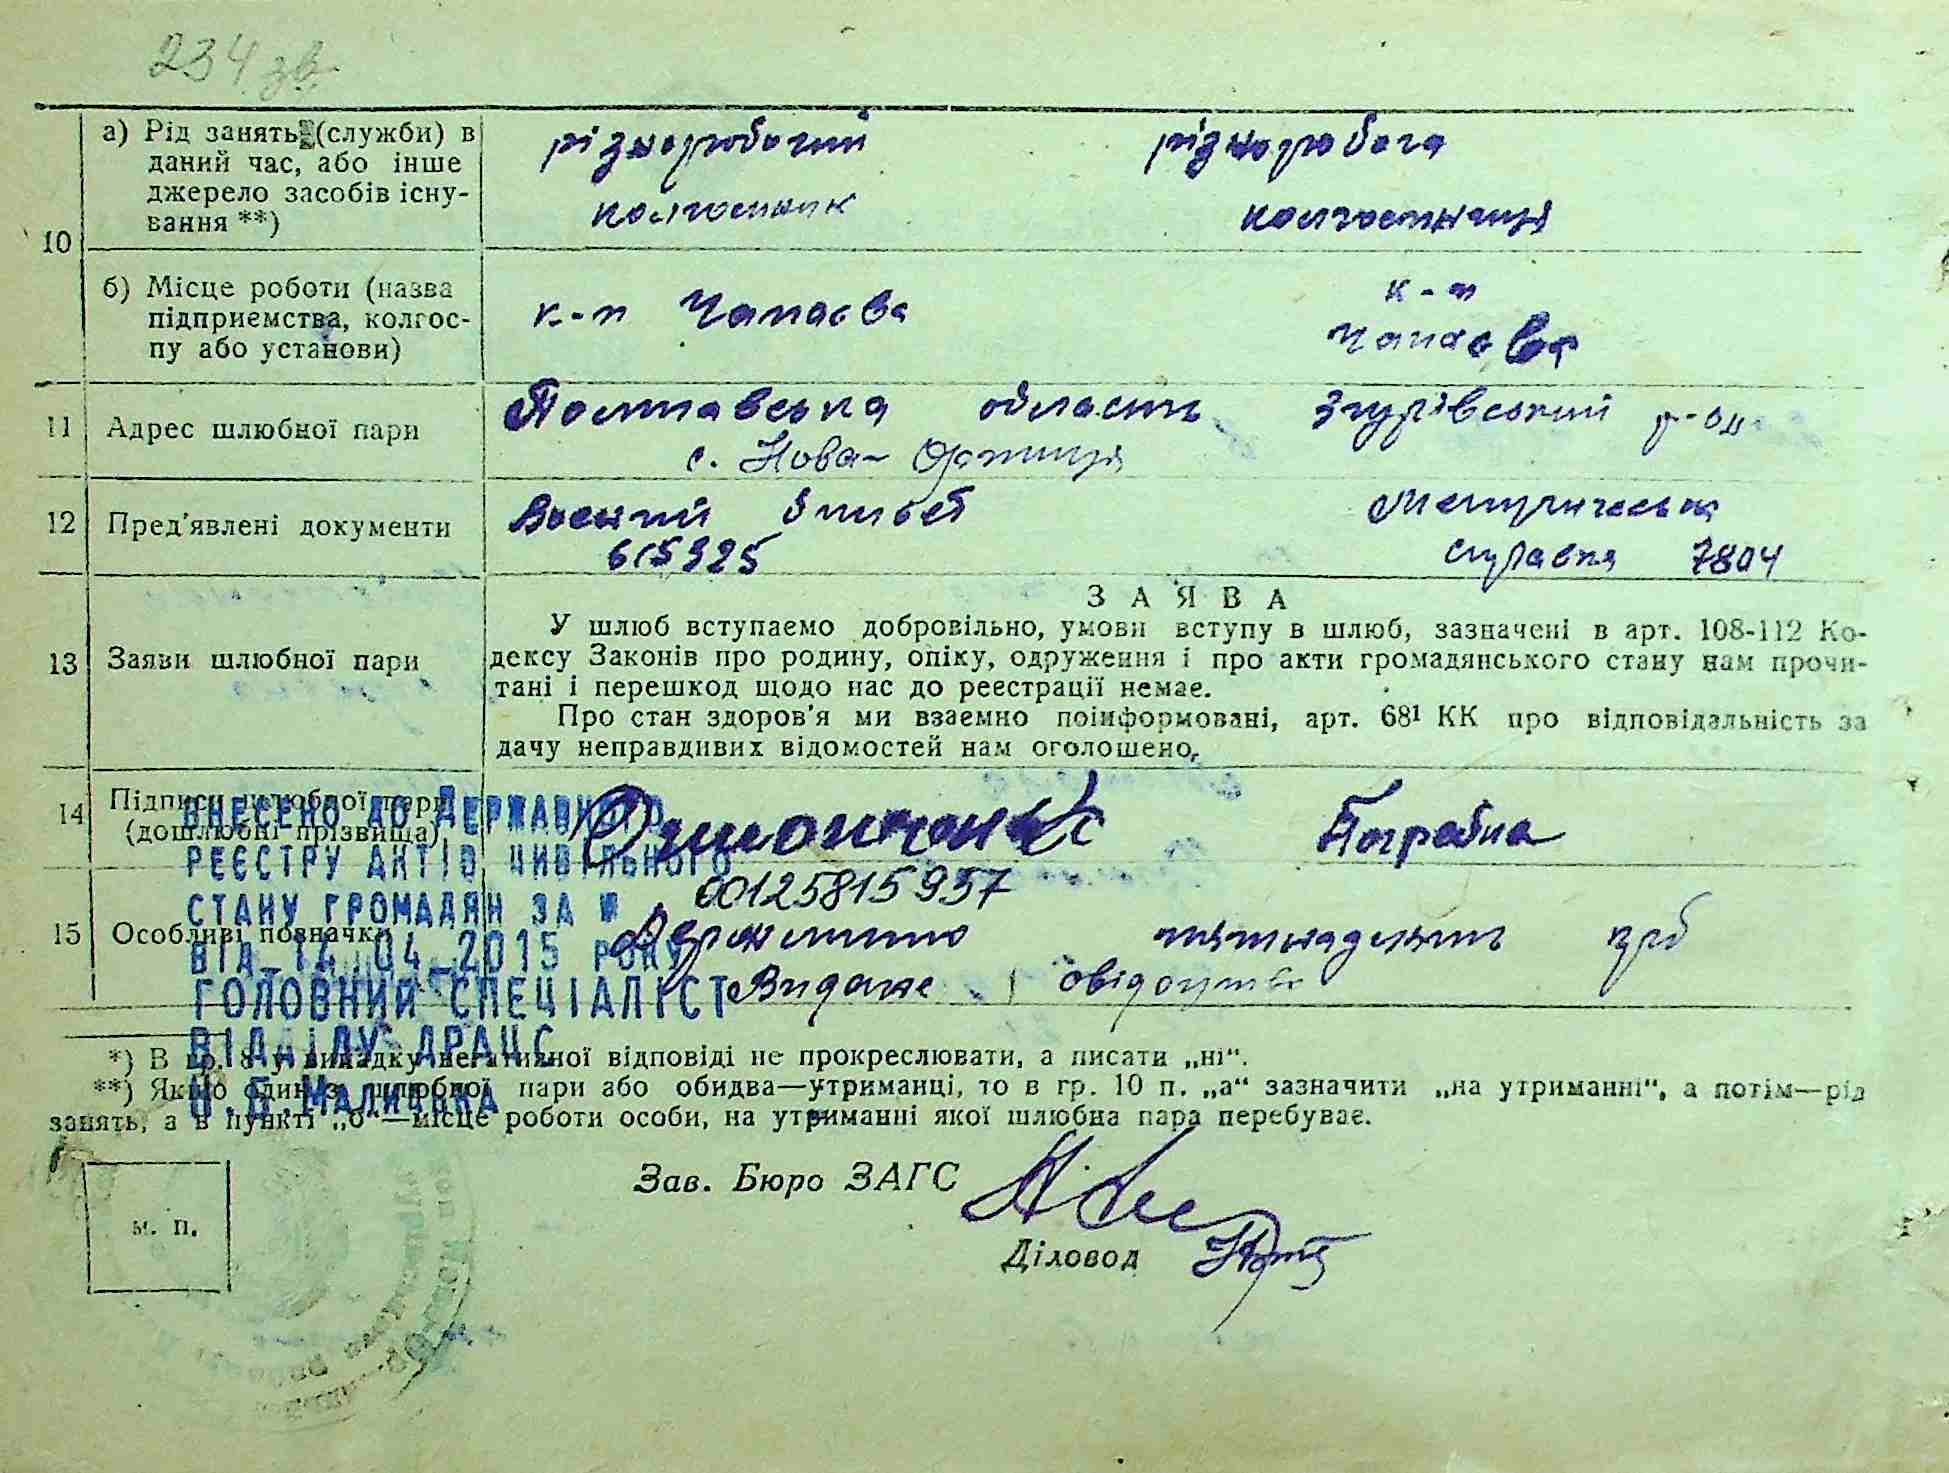 234 зв.
10
а) Рід занять (служби) в
даний час, або інше
джерело засобів існу-
вання **)
різноробочий
колгоспник
різноробоча
колгоспниця
б) Місце роботи (назва
підприємства, колгос-
пу або установи)
к-п Чапаєва
к-п
Чапаєва
11
Адрес шлюбної пари
Полтавська область Згурівський р-он
с. Нова-Оржиця
12
Пред'явлені документи
Воєнний билєт
615925
Метрическа
справка 7804
13
Заяви шлюбної пари
ЗАЯВА
У шлюб вступаємо добровільно, умови вступу в шлюб, зазначені в арт. 108-112 Ко-
дексу Законів про родину, опіку, одруження і про акти громадянського стану нам прочи-
тані і перешкод щодо нас до реєстрації немає.
Про стан здоров'я ми взаємно поінформовані, арт. 68¹ КК про відповідальність за
дачу неправдивих відомостей нам оголошено.
14
Підписи шлюбної пари
(дошлюбні прізвища)
Погребна
15
Особливі позначки
00125815957
Держмито пятнадцять крб
Видане свідоцтво
ВНЕСЕНО ДО ДЕРЖАВНОГО
РЕЄСТРУ АКТІВ ЦИВІЛЬНОГО
СТАНУ ГРОМАДЯН ЗА №
ВІД 14.04.2015 РОКУ
ГОЛОВНИЙ СПЕЦІАЛІСТ
ВІДДІЛУ ДРАЦС
*) В гр. 8 у випадку негативної відповіді не прокреслювати, а писати „ні“.
**) Якщо один з шлюбної пари або обидва—утриманці, то в гр. 10 п. „а“ зазначити „на утриманні“, а потім—рід
занять, а в пункті „б“—місце роботи особи, на утриманні якої шлюбна пара перебуває.
Зав. Бюро ЗАГС
Діловод
м. п.